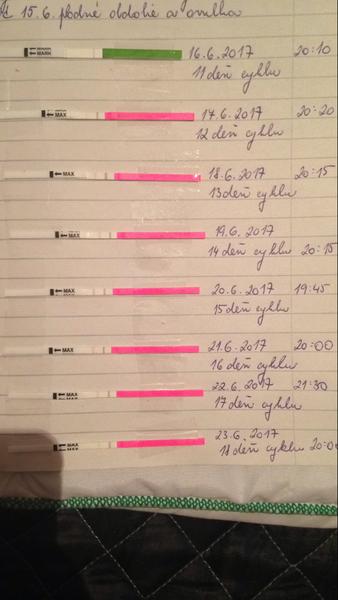 15.6. plodné obdobie a ovulka
MARK 16.6.2017 20:10
11 deň cyklu
MAX 17.6.2017 20:20
12 deň cyklu
MAX 18.6.2017 20:15
13 deň cyklu
MAX 19.6.2017
14 deň cyklu 20:15
MAX 20.6.2017 19:45
15 deň cyklu
MAX 21.6.2017 20:00
16 deň cyklu
MAX 22.6.2017 21:30
17 deň cyklu
MAX 23.6.2017
18 deň cyklu 20:00